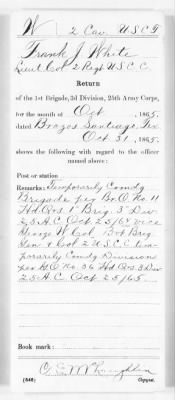 W 2 Cav. U.S.C.T.
Frank J. White
Lieut Col 2 Regt U.S.C.C.
Return
of the 1st Brigade, 3d Division, 25th Army Corps,
for the month of Oct, 1865,
dated Brazos Santiago, Tex
Oct 31, 1865,
shows the following with regard to the officer
named above:
Post or station
Remarks: Temporarily Comdg
Brigade per Br. O. No. 11
Hd Qrs 1" Brig. 3" Div
25 A.C. Oct 25/65 vice
George W. Col Bvt Brig
Gen & Col 2 U.S.C.C. tem-
porarily Comdg Division
per G.O. No. 36 Hd Qrs 3 Div
25 A.C. Oct 25/65.
Book mark:
(546) Copyist.